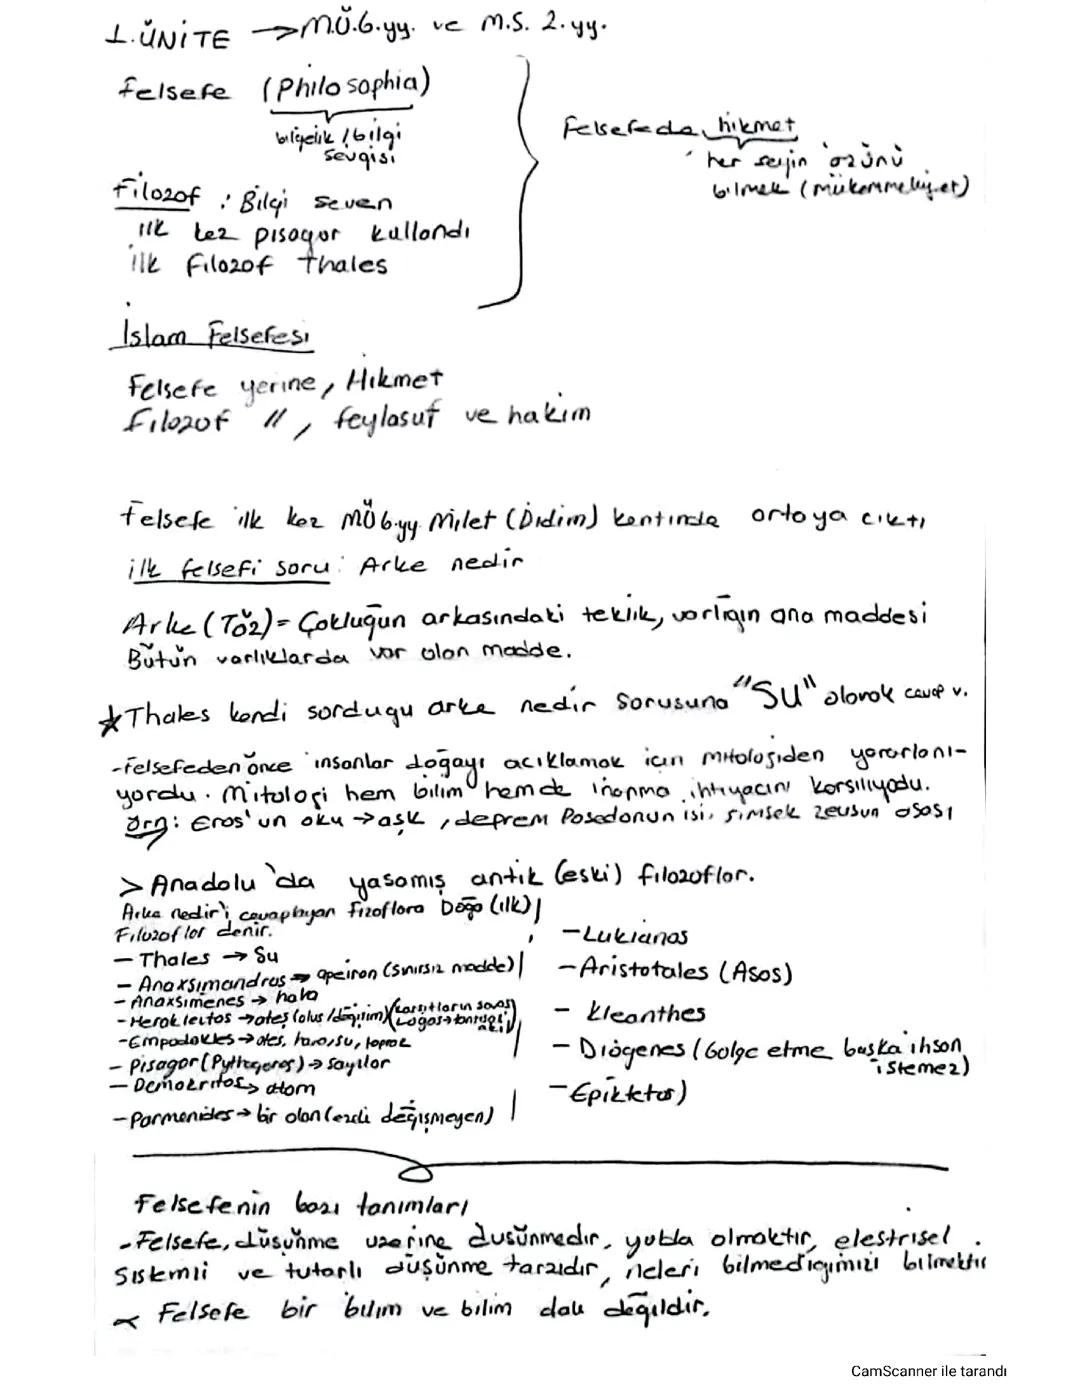 1. ÜNİTE → M.Ö.6.yy. ve M.S. 2.yy.
Felsefe (Philosophia)
bilgelik / bilgi
sevgisi
Filozof : Bilgi seven
ilk kez pisagor kullandı
ilk filozof Thales
Felsefede hikmet
her şeyin özünü
bilmek (mükemmeliyet)
İslam Felsefesi
Felsefe yerine, Hikmet
Filozof ", feylasuf ve hakim
Felsefe ilk kez MÖ 6.yy Milet (Didim) kentinde ortaya çıktı
ilk felsefi soru: Arke nedir
Arke (Töz) = Çokluğun arkasındaki teklik, varlığın ana maddesi
Bütün varlıklarda var olan madde.
★ Thales kendi sorduğu arke nedir sorusuna "SU" olarak cevap v.
-Felsefeden önce insanlar doğayı açıklamak için mitolojiden yararlanı-
yordu. Mitoloji hem bilim hemde inanma ihtiyacını karsılıyodu.
Örn: Eros'un oku → aşk, deprem Posedonun isi, simsek zeusun asası
> Anadolu'da yasamış antik (eski) filozoflar.
Arke nedir'i cevaplayan fizoflara Doğa (ilk)
Filozoflar denir.
- Thales → Su
- Anaxsimandros → apeiron (sınırsız madde)
- Anaxsimenes → hava
- Herakleitos → ates (olus / değişim) (karsıtların savası) (Logos → tanrısal akıl)
- Empodokles → ates, hava, su, toprak
- Pisagor (Pythagoras) → sayılar
- Demokritos → atom
- Parmenides → bir olan (ezeli değişmeyen)
- Lukianos
- Aristotales (Asos)
- Kleanthes
- Diogenes (Gölge etme başka ihsan
istemez)
- Epiktetos)
Felsefenin bazı tanımları
- Felsefe, düşünme üzerine düsünmedir, yolda olmaktır, elestrisel
Sistemli ve tutarlı düşünme tarzıdır, neleri bilmediğimizi bilmektir
Felsefe bir bilim ve bilim dalı değildir.
CamScanner ile tarandı